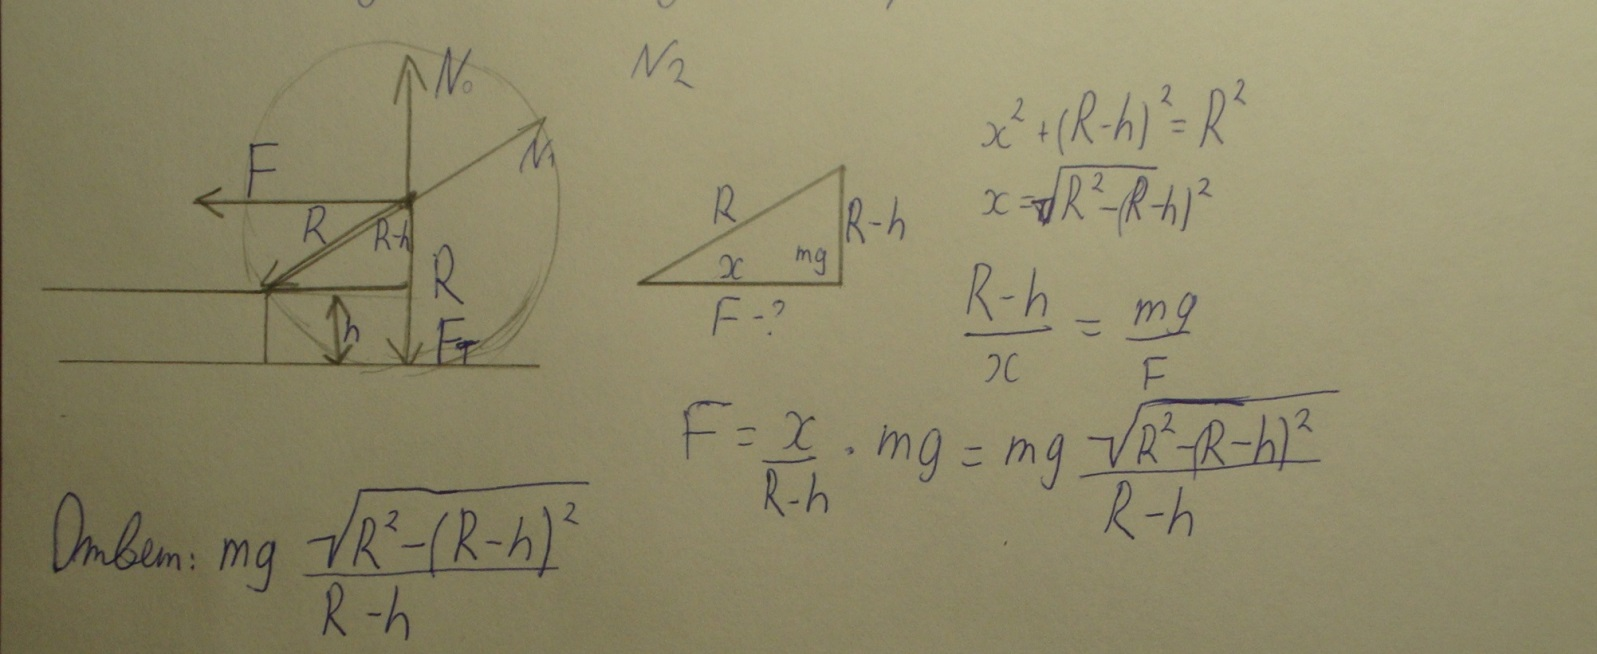 N2
N₀
N₁
F
R
R-h
R
h
Fт
R
R-h
x
mg
F-?
x² + (R-h)² = R²
x = √R²-(R-h)²
(R-h)/x = mg/F
F = x/(R-h) · mg = mg √R²-(R-h)²/(R-h)
Ответ: mg √R²-(R-h)²/(R-h)